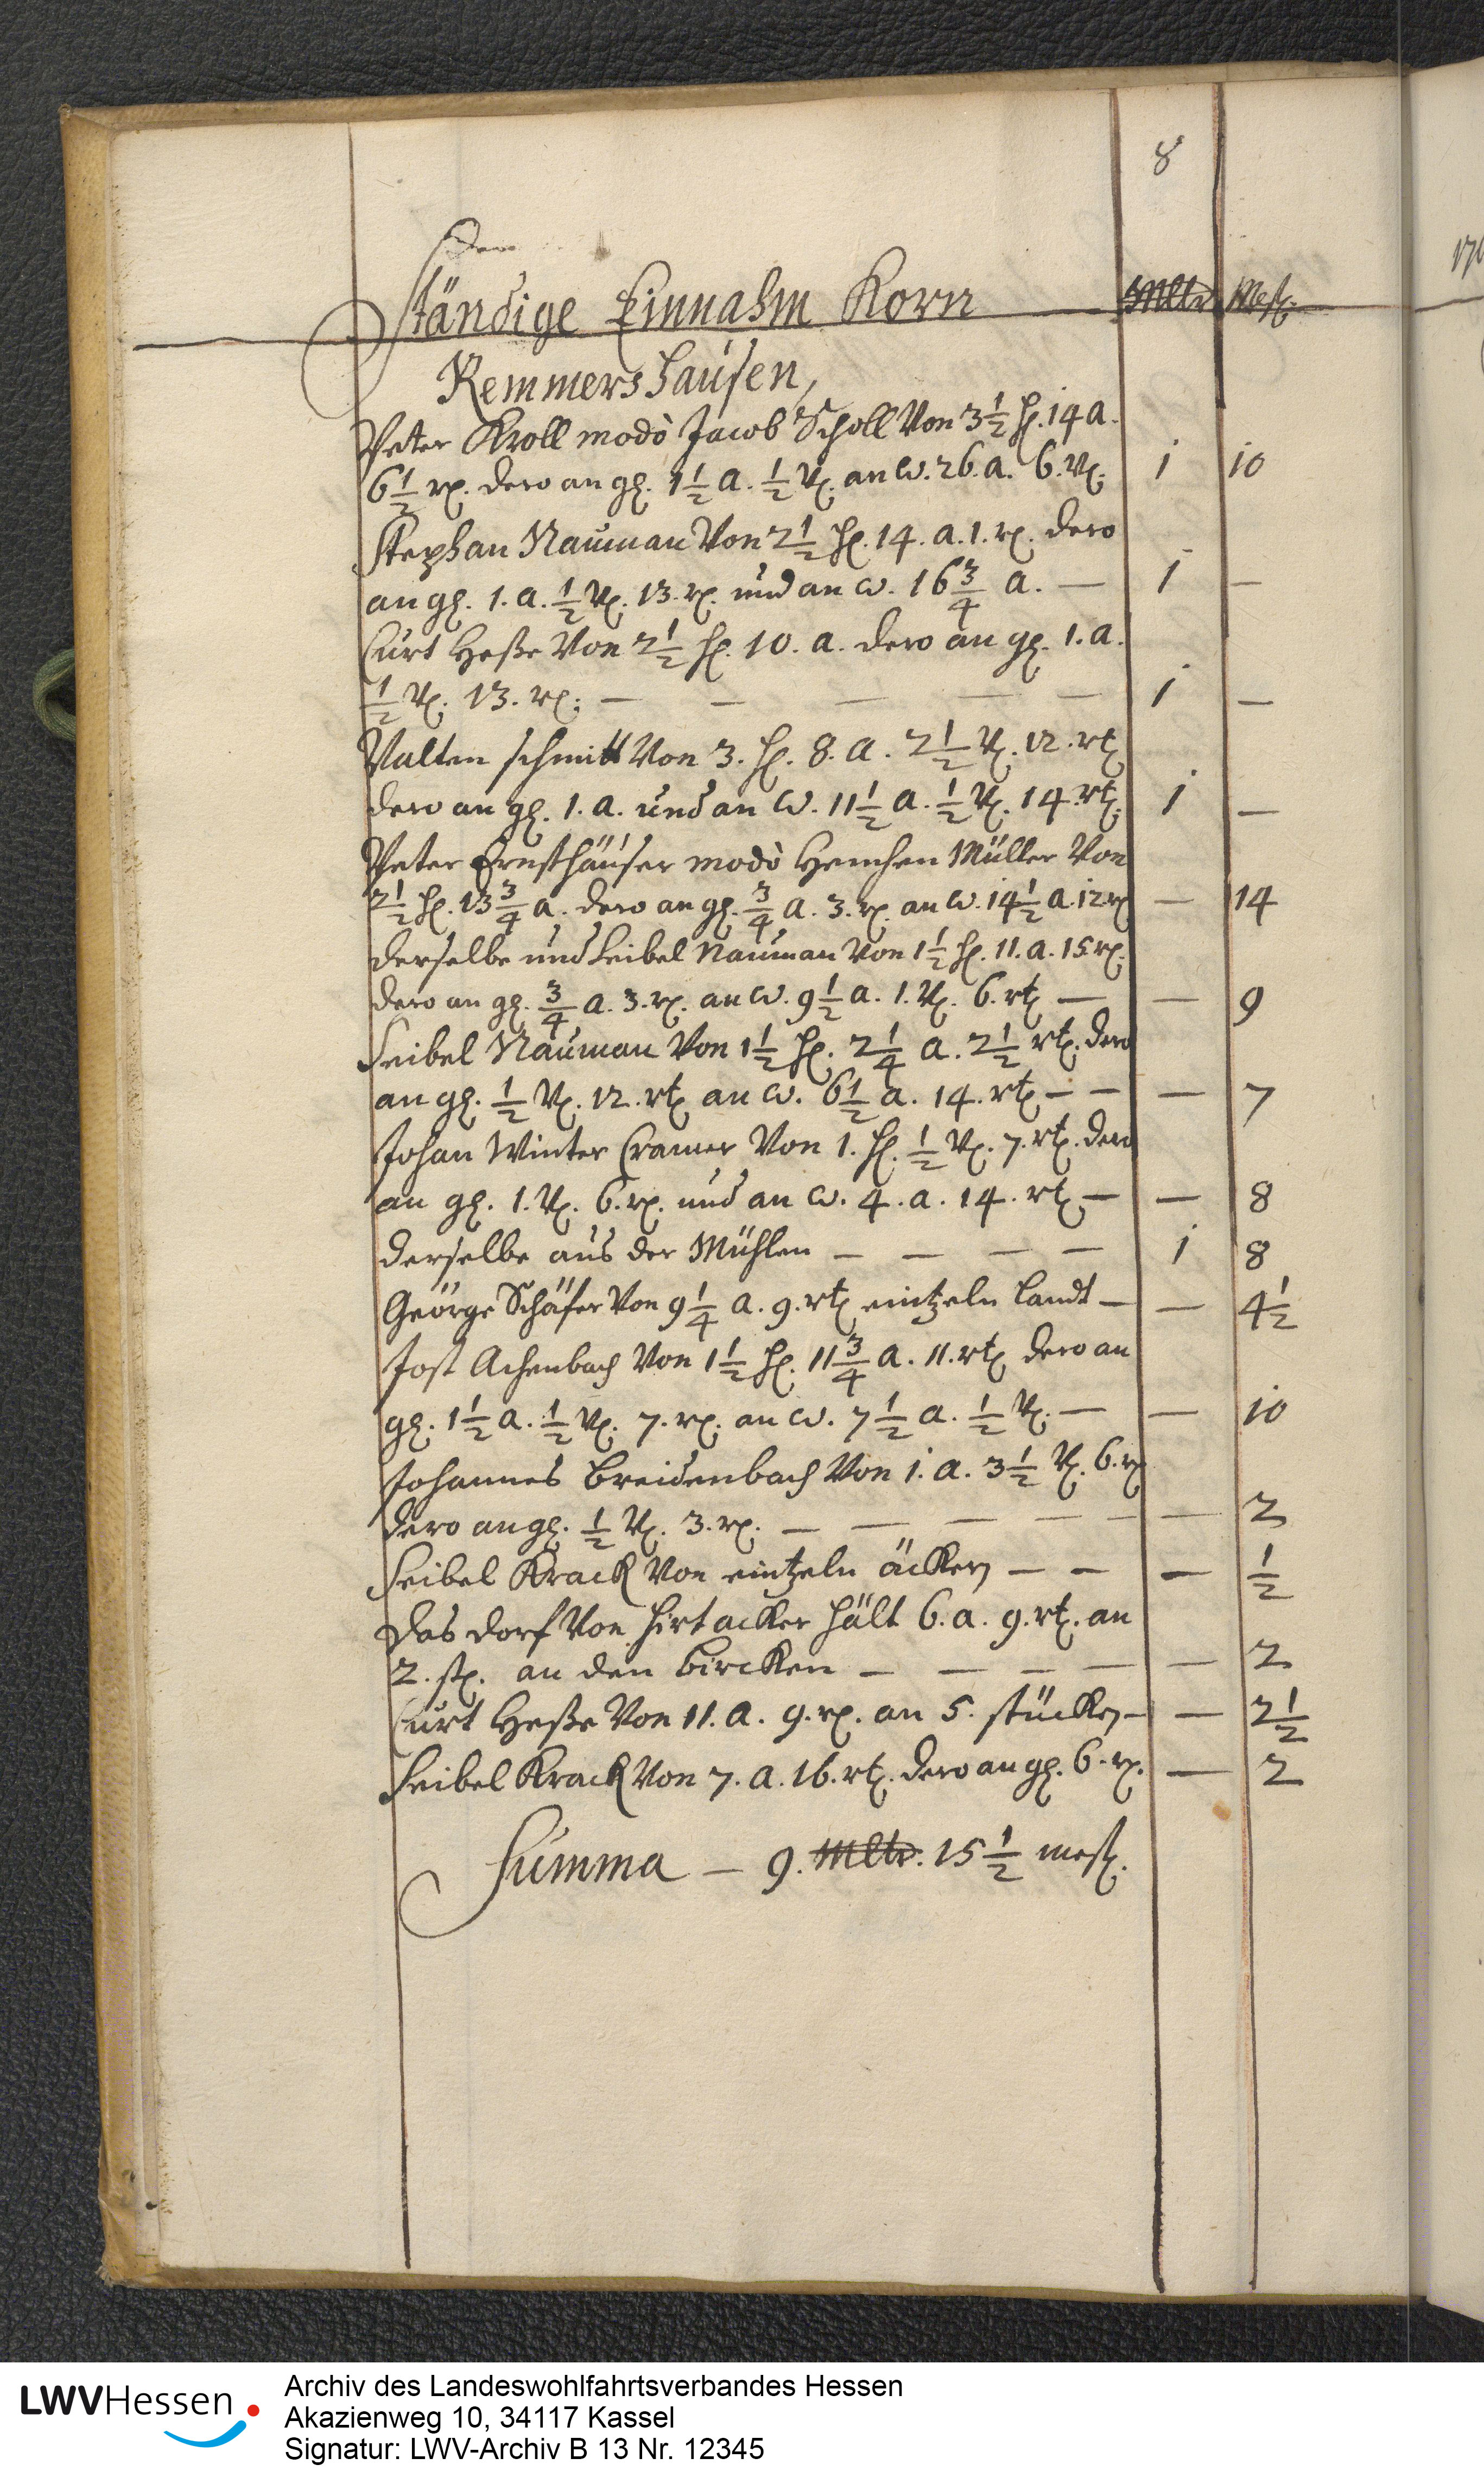 8
Ständige Einnahm Korn Mltr Mest.
Remmershausen,
Peter Kroll modò Jacob Scholl Von 3 1/2 H. 14 a.
6 1/2 rt. dero an gl. 1 1/2 a. 1/2 V. an W. 26. a. 6. V. 1 10
Stephan Nauman Von 2 1/2 H. 14. a. 1. rt. dero
an gl. 1. a. 1/2 V. 13. rt. und an W. 16 3/4 a. — 1 —
Curt Heße Von 2 1/2 H. 10. a. dero an gl. 1. a.
1/2 V. 13. rt. — — — — — 1 —
Valten schmitt Von 3. H. 8. a. 2 1/2 V. 12. rt
dero an gl. 1. a. und an W. 11 1/2 a. 1/2 V. 14. rt. 1 —
Peter Ernsthäuser modò Henchen Müller Von
2 1/2 H. 13 3/4 a. dero an gl. 3/4 a. 3. rt. an W. 14 1/2 a. 12 rt — 14
derselbe und Seibel Nauman Von 1 1/2 H. 11. a. 15 rt.
dero an gl. 3/4 a. 3. rt. an W. 9 1/2 a. 1. V. 6. rt — — 9
Seibel Nauman Von 1 1/2 H. 2 1/4 a. 2 1/2 rt. dero
an gl. 1/2 V. 12. rt an W. 6 1/2 a. 14. rt — — — 7
Johan Winter Cramer Von 1. H. 1/2 V. 7. rt. dero
an gl. 1. V. 6. rt. und an W. 4. a. 14. rt — — 8
derselbe aus der Mühlen — — — — 1 8
George Schäfer Von 9 1/4 a. 9. rt eintzeln Landt — — 4 1/2
Jost Achenbach Von 1 1/2 H. 11 3/4 a. 11. rt dero an
gl. 1 1/2 a. 1/2 V. 7. rt. an W. 7 1/2 a. 1/2 V. — — 10
Johannes Breidenbach Von 1. a. 3 1/2 V. 6. rt
dero an gl. 1/2 V. 3. rt. — — — — — — 2
Seibel Krack Von eintzeln äckern — — — 1/2
Das dorf Von hirtacker hält 6. a. 9. rt. an
2. st. an den bircken — — — — — 2
Curt Heße Von 11. a. 9. rt. an 5. stücken — — 2 1/2
Seibel Krack Von 7. a. 16. rt. dero an gl. 6. rt. — 2
Summa — 9. Mltr. 15 1/2 mest.
LWVHessen
Archiv des Landeswohlfahrtsverbandes Hessen
Akazienweg 10, 34117 Kassel
Signatur: LWV-Archiv B 13 Nr. 12345